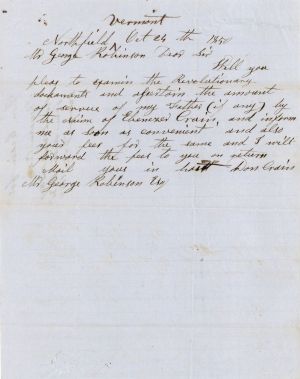 Vermont
Northfield Oct 24 th 1850
Mr George Robinson Dear Sir
Will you
pleas to examin the Revolutionary
documents and assertain the amount
of service of my Father (if any) by
the name of Ebenezer Crain, and inform
me as soon as convenient and also
your fees for the same and I will
forward the fees to you on return
Mail yours in haste
Crain
Mr. George Robinson Esq